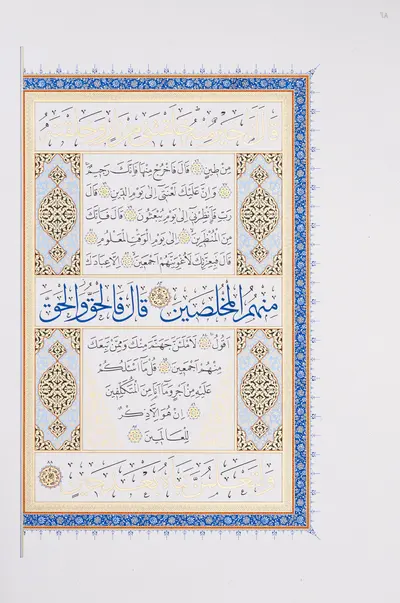 مِنْ طِينٍ قَالَ فَاخْرُجْ مِنْهَا فَاِنَّكَ رَجِيمٌ
وَاِنَّ عَلَيْكَ لَعْنَتِى اِلٰى يَوْمِ الدِّينِ قَالَ
رَبِّ فَاَنْظِرْنِى اِلٰى يَوْمِ يُبْعَثُونَ قَالَ فَاِنَّكَ
مِنَ الْمُنْظَرِينَ اِلٰى يَوْمِ الْوَقْتِ الْمَعْلُومِ
قَالَ فَبِعِزَّتِكَ لَاُغْوِيَنَّهُمْ اَجْمَعِينَ اِلَّا عِبَادَكَ
مِنْهُمُ الْمُخْلَصِينَ قَالَ فَالْحَقُّ وَالْحَقَّ
اَقُولُ لَاَمْلَئَنَّ جَهَنَّمَ مِنْكَ وَمِمَّنْ تَبِعَكَ
مِنْهُمْ اَجْمَعِينَ قُلْ مَا اَسْئَلُكُمْ
عَلَيْهِ مِنْ اَجْرٍ وَمَا اَنَا مِنَ الْمُتَكَلِّفِينَ
اِنْ هُوَ اِلَّا ذِكْرٌ
لِلْعَالَمِينَ